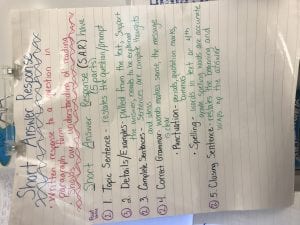 Short Answer Response
• Written response to a question in
paragraph form
• Shows our understanding of reading
Short Answer Response (SAR) have
5 parts!
② 1. Topic Sentence - restates the question/prompt
③ 2. Details/Examples - pulled from the text, Support
the answer, needs to be explained
② 3. Complete Sentences - Sentences are complete thoughts
and ideas
② 4. Correct Grammar - words makes sense, the message
is clear
• Punctuation - periods, question marks,
commas
• Spelling - words in text or 4th
grade spelling words are accurate
② 5. Closing Sentence - restates the beginning and
wraps up the answer